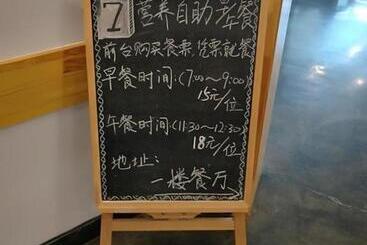 7 营养自助套餐
前台购买餐票,凭票就餐
早餐时间:(7:00~9:00)
15元/位
午餐时间:(11:30~12:30)
18元/位
地址:
一楼餐厅